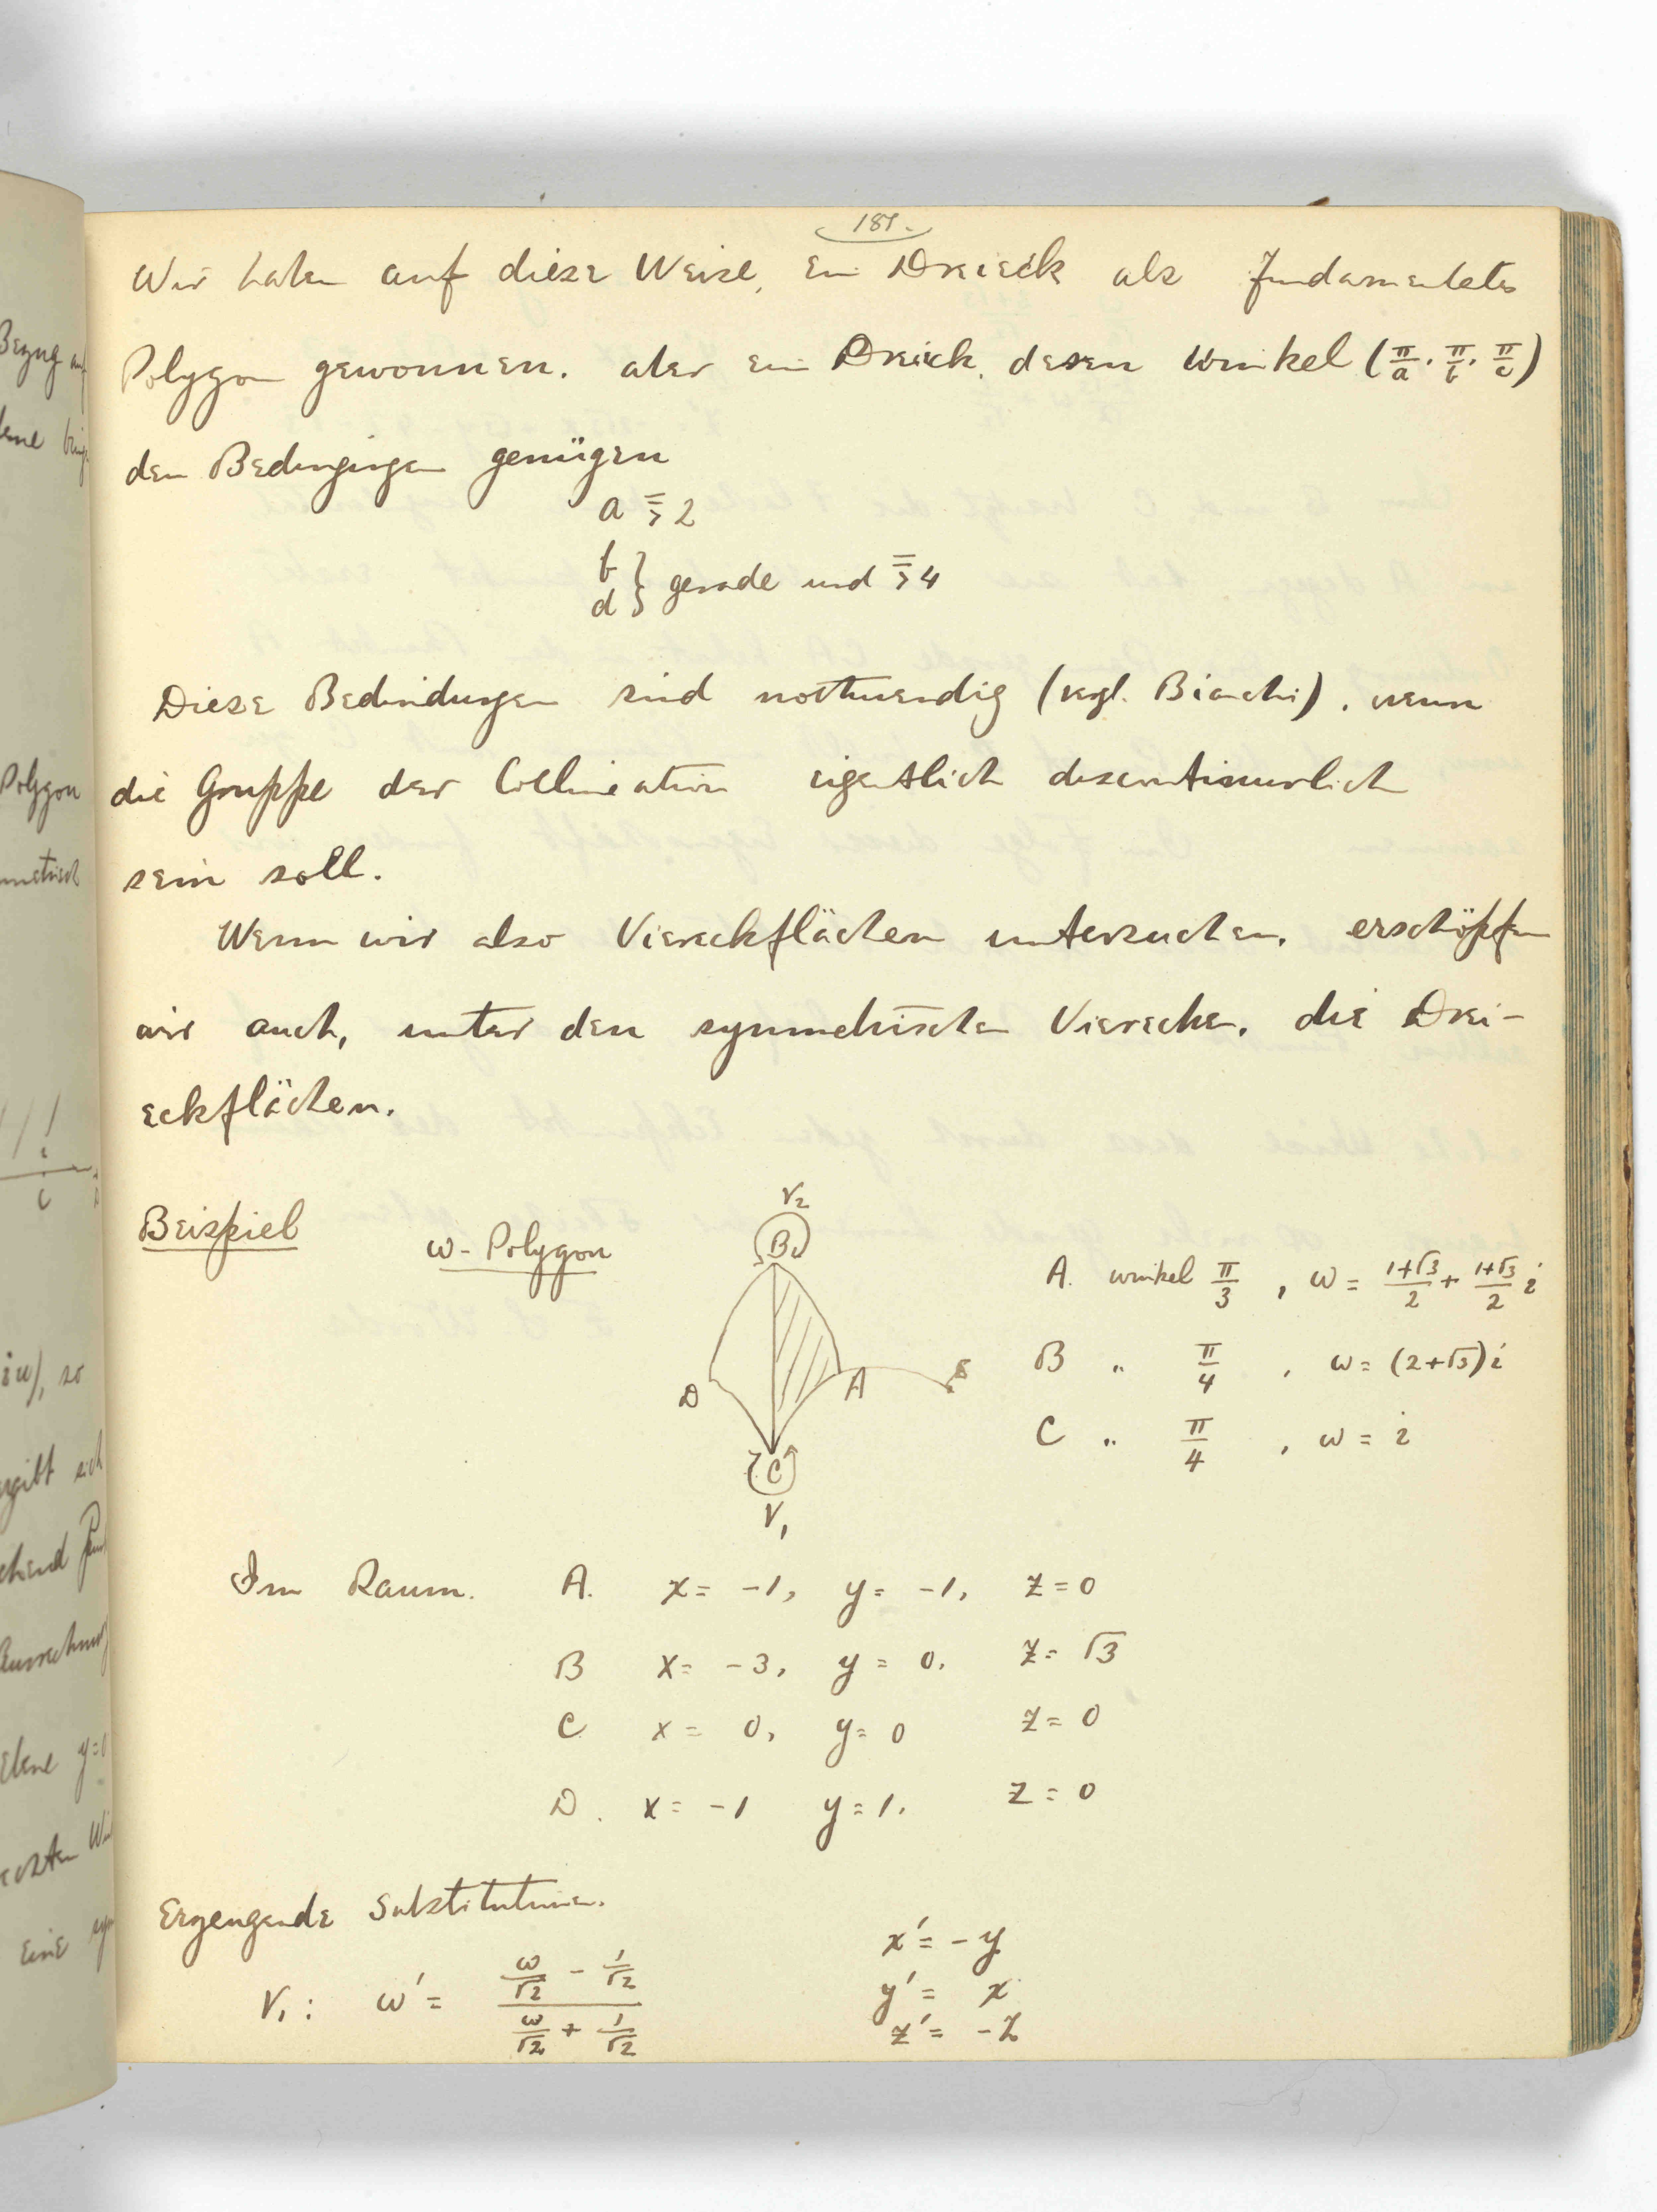 181.
Wir haben auf diese Weise, ein Dreieck als fundamentales
Polygon gewonnen. aber ein Dreick, dessen Winkel (π/a, π/b, π/c)
den Bedingungen genügen
a ⩾ 2
b
d } gerade und ⩾ 4
Diese Bedindungen sind nothwendig (vgl. Bianchi), wenn
die Gruppe der Collineation eigentlich discontinuirlich
sein soll.
Wenn wir also Viereckflächen untersuchen, erschöpfen
wir auch, unter den symmetrischen Vierecken, die Drei-
eckflächen.
Beispiel ω-Polygon
V₂
B
D A
C
V₁
A. winkel π/3, ω = (1+√3)/2 + (1+√3)/2 i
B " π/4, ω = (2+√3)i
C " π/4, ω = i
Im Raum. A. x = -1, y = -1, z = 0
B x = -3, y = 0, z = √3
C x = 0, y = 0 z = 0
D. x = -1 y = 1, z = 0
Erzeugende Substitutionen.
V₁: ω' = (ω/√2 - 1/√2)/(ω/√2 + 1/√2)
x' = -y
y' = x
z' = -z
Bezug auf
Polygon
iω), so
ergibt sich
Ebene y=0
eine